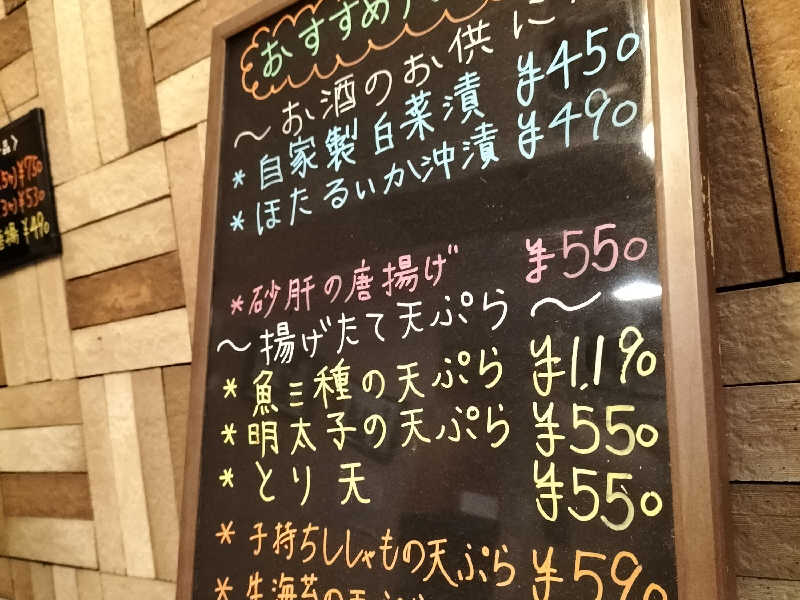 おすすめ
〜お酒のお供に
* 自家製白菜漬 ¥450
* ほたるいか沖漬 ¥490
* 砂肝の唐揚げ ¥550
〜揚げたて天ぷら〜
* 魚三種の天ぷら ¥1,190
* 明太子の天ぷら ¥550
* とり天 ¥550
* 子持ちししゃもの天ぷら ¥590
* 生海苔の天ぷら
品〉
¥750
¥530
揚 ¥490